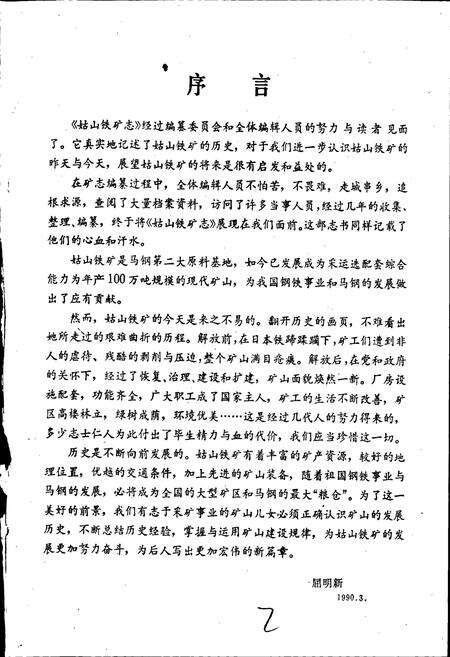 序 言
《姑山铁矿志》经过编纂委员会和全体编辑人员的努力与读者见面
了。它真实地记述了姑山铁矿的历史，对于我们进一步认识姑山铁矿的
昨天与今天，展望姑山铁矿的将来是很有启发和益处的。
在矿志编纂过程中，全体编辑人员不怕苦，不畏难，走城串乡，追
根求源，查阅了大量档案资料，访问了许多当事人员，经过几年的收集、
整理、编纂，终于将《姑山铁矿志》展现在我们面前。这部志书同样记载了
他们的心血和汗水。
姑山铁矿是马钢第二大原料基地，如今已发展成为采运选配套综合
能力为年产100万吨规模的现代矿山，为我国钢铁事业和马钢的发展做
出了应有贡献。
然而，姑山铁矿的今天是来之不易的。翻开历史的画页，不难看出
她所走过的艰难曲折的历程。解放前，在日本铁蹄蹂躏下，矿工们遭到非
人的虐待、残酷的剥削与压迫，整个矿山满目疮痍。解放后，在党和政府
的关怀下，经过了恢复、治理、建设和扩建，矿山面貌焕然一新。厂房设
施配套，功能齐全，广大职工成了国家主人，矿工的生活不断改善，矿
区高楼林立，绿树成荫，环境优美……这是经过几代人的努力得来的，
多少志士仁人为此付出了毕生精力与血的代价，我们应当珍惜这一切。
历史是不断向前发展的。姑山铁矿有着丰富的矿产资源，较好的地
理位置，优越的交通条件，加上先进的矿山装备，随着祖国钢铁事业与
马钢的发展，必将成为全国的大型矿区和马钢的最大“粮仓”。为了这一
美好的前景，我们有志于采矿事业的矿山儿女必须正确认识矿山的发展
历史，不断总结历史经验，掌握与运用矿山建设规律，为姑山铁矿的发
展更加努力奋斗，为后人写出更加宏伟的新篇章。
屈明新
1990.3.